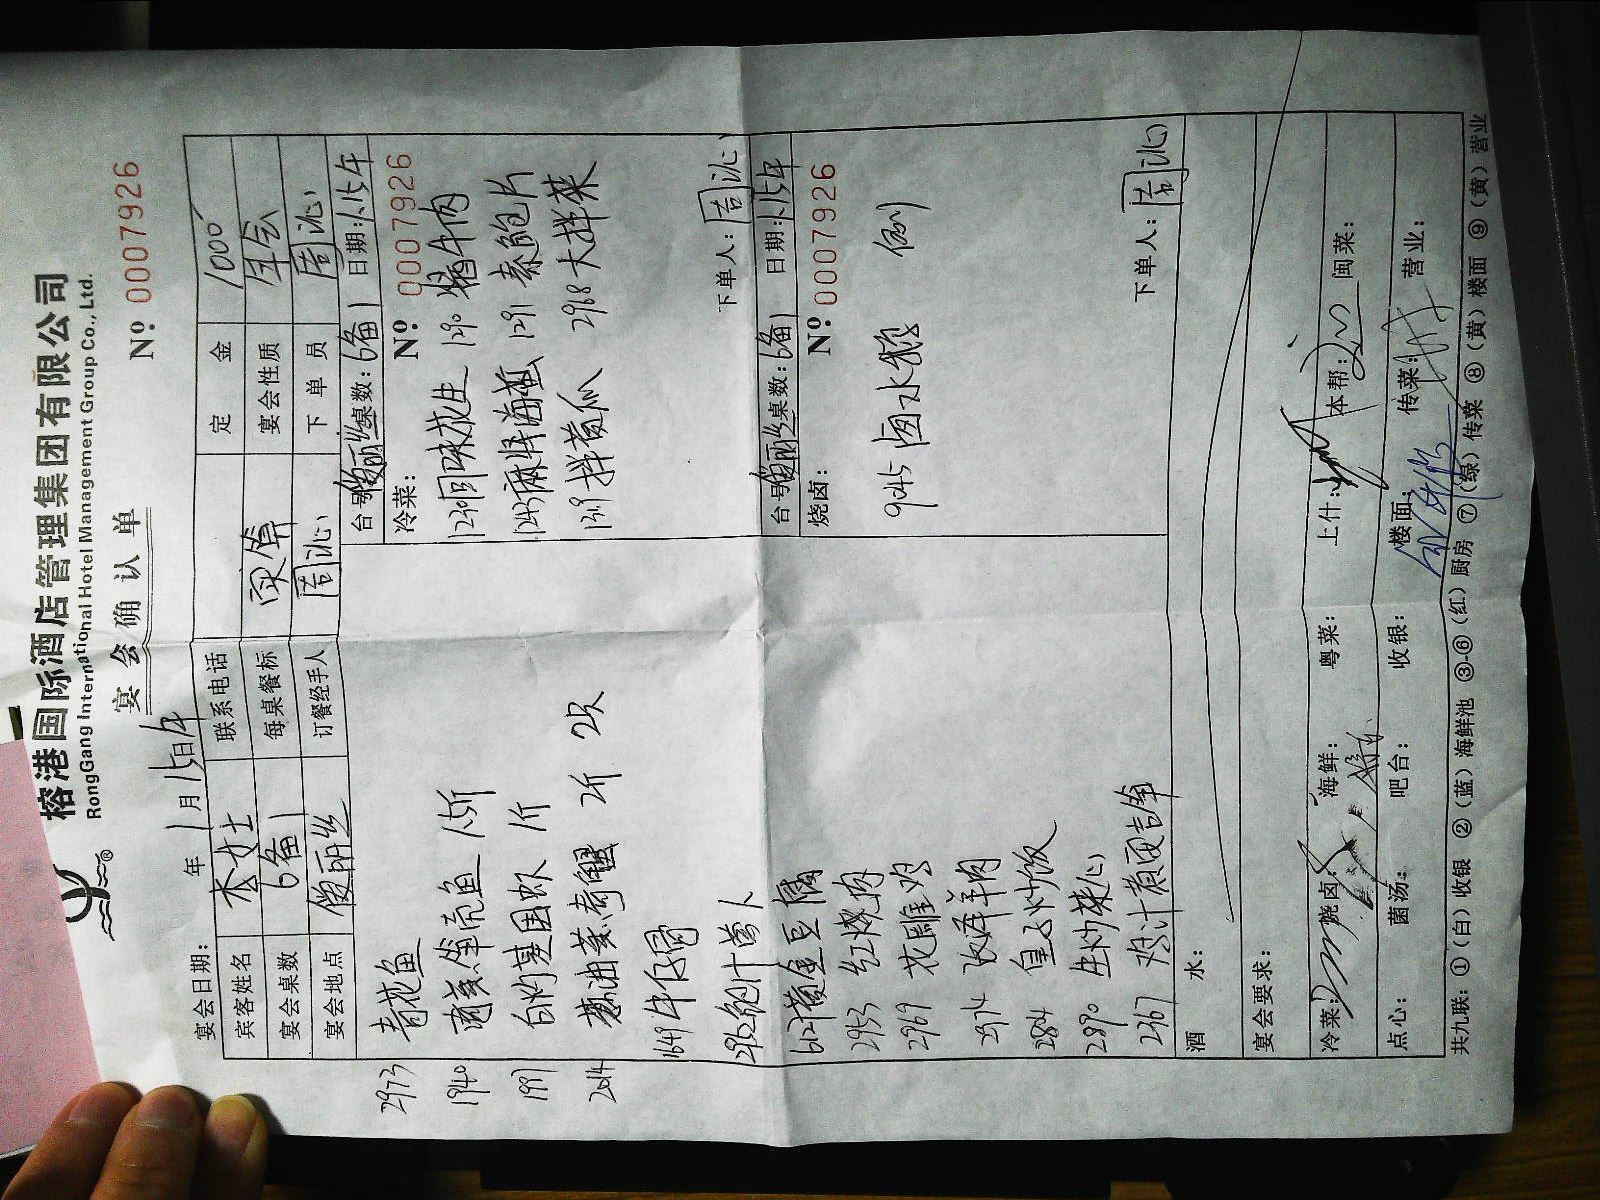 榕港国际酒店管理集团有限公司
RongGang International Hotel Management Group Co., Ltd.
宴会确认单
№ 0007926
宴会日期： 年 1月15日午
宾客姓名 李女士 联系电话 定金 1000
宴会桌数 6备1 每桌餐标 实算 宴会性质 年会
宴会地点 订餐经手人 周沁 下单员 周沁
2973 青花鱼
1940 清蒸笋壳鱼 1.5斤
1997 白灼基围虾 1斤
2014 葱油蒸青蟹 2斤 2只
1649 牛仔骨
2952 鲍汁萝卜
6127 黄金豆腐
2953 红烧肉
2969 花雕鸡
2974 羊肉
2884 皇子炒饭
2890 生炒菜心
2367 鸡汁煮
台号 桌数：6备1 日期：1.15午
冷菜： № 0007926
1240 回味花生 1290 酱牛肉
1243 麻酱海蜇 1291 素鲍片
1319 拌黄瓜 2988 大拌菜
下单人：周沁
台号 桌数：6备1 日期：1.15午
烧卤： № 0007926
9045 卤水 例
下单人：周沁
酒水：
宴会要求：
冷菜： 烧卤： 海鲜： 粤菜： 上什： 本帮： 闽菜：
点心： 菌汤： 吧台： 收银： 楼面： 传菜： 营业：
共九联：①（白）收银 ②（蓝）海鲜池 ③-⑥（红）厨房 ⑦（绿）传菜 ⑧（黄）楼面 ⑨（黄）营业